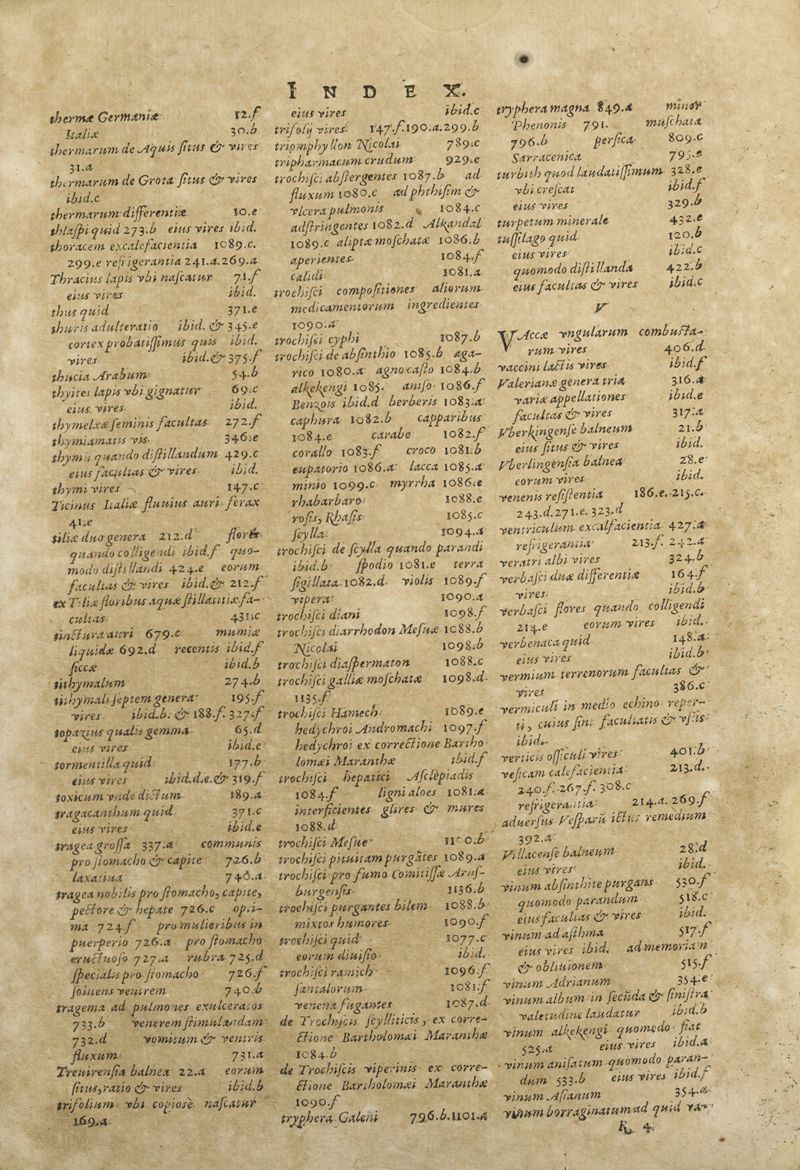 INDEX.
thermæ Germaniæ 12.f
Italiæ 30.b
thermarum de Aquis ſitus & vires
31.a
thermarum de Grota ſitus & vires
ibid.c
thermarum differentiæ 10.e
thlaſpi quid 273.b eius vires ibid.
thoracem excalefacientia 1089.c.
299.e refrigerantia 241.a.269.a
Thracius lapis vbi naſcatur 71.f
eius vires ibid.
thus quid 371.e
thuris adulteratio ibid. & 345.e
cortex probatiſſimus quis ibid.
vires ibid.& 375.f
thucia Arabum 54.b
thyites lapis vbi gignatur 69.c
eius vires ibid.
thymelææ ſeminis facultas 272.f
thymiamatis vis 346.e
thymū quando diſtillandum 429.c
eius facultas & vires ibid.
thymi vires 147.c
Ticinus Italiæ fluuius auri ferax
41.e
tiliæ duo genera 212.d flores
quando colligendi ibid.f quo-
modo diſtillandi 424.e eorum
facultas & vires ibid.& 212.f
ex Tiliæ floribus aquæ ſtillatitiæ fa-
cultas 431.c
tinctura auri 679.c mumiæ
liquidæ 692.d recentis ibid.f
ſiccæ ibid.b
tithymalum 274.b
tithymali ſeptem genera 195.f
vires ibid.b. & 188.f. 327.f
topazius qualis gemma 65.d
eius vires ibid.e
tormentilla quid 177.b
eius vires ibid.d.e.& 319.f
toxicum vnde dictum 189.a
tragacanthum quid 371.c
eius vires ibid.e
tragea groſſa 337.a communis
pro ſtomacho & capite 726.b
laxatiua 740.a
tragea nobilis pro ſtomacho, capite,
pectore & hepate 726.c opti-
ma 724.f pro mulieribus in
puerperio 726.a pro ſtomacho
eructuoſo 727.a rubra 725.d
ſpecialis pro ſtomacho 726.f
ſoluens ventrem 740.b
tragema ad pulmones exulceratos
733.b venerem ſtimulandam
732.d vomitum & ventris
fluxum 731.a
Treuirenſia balnea 22.a eorum
ſitus, ratio & vires ibid.b
trifolium vbi copioſè naſcatur
169.a
eius vires ibid.c
trifolij vires 147.f.190.a.299.b
triomphyllon Nicolai 789.c
tripharmacum crudum 929.e
trochiſci abſtergentes 1087.b ad
fluxum 1080.c ad phthiſim &
vlcera pulmonis 1084.c
adſtringentes 1082.d Alkandal
1089.c aliptæ moſchatæ 1086.b
aperientes 1084.f
calidi 1081.a
trochiſci compoſitiones aliorum
medicamentorum ingredientes
1090.a
trochiſci cyphi 1087.b
trochiſci de abſinthio 1085.b aga-
rico 1080.a agno caſto 1084.b
alkekengi 1085. aniſo 1086.f
Benzois ibid.d berberis 1083.a
caphura 1082.b capparibus
1084.e carabe 1082.f
corallo 1083.f croco 1081.b
eupatorio 1086.a lacca 1085.a
minio 1099.c myrrha 1086.e
rhabarbaro 1088.e
roſis, Rhaſis 1085.c
ſcylla 1094.a
trochiſci de ſcylla quando parandi
ibid.b ſpodio 1081.e terra
ſigillata 1082.d violis 1089.f
vipera 1090.a
trochiſci diani 1098.f
trochiſci diarrhodon Meſuæ 1088.b
Nicolai 1098.b
trochiſci diaſpermaton 1088.c
trochiſci galliæ moſchatæ 1098.d
1135.f
trochiſci Hamech 1089.e
hedychroi Andromachi 1097.f
hedychroi ex correctione Bartho
lomæi Maranthæ ibid.f
trochiſci hepatici Aſclepiadis
1084.f ligni aloes 1081.a
interficientes glires & mures
1088.d
trochiſci Meſue .b
trochiſci pituitam purgātes 1089.a
trochiſci pro fumo Comitiſſæ Arnſ-
burgenſis 1136.b
trochiſci purgantes bilem 1088.b
mixtos humores 1090.f
trochiſci quid 1077.c
eorum diuiſio ibid.
trochiſci ramich 1096.f
ſantalorum 1081.f
venena fugantes 1087.d
de Trochiſcis ſcylliticis, ex corre-
ctione Bartholomæi Maranthæ
1084.b
de Trochiſcis viperinis ex corre-
ctione Bartholomæi Maranthæ
1090.f
tryphera Galeni 796.b.1101.a
tryphera magna 849.a minor
Phenonis 791. muſchata
796.b perſica 809.c
Sarracenica 795.e
turbith quod laudatiſſimum 328.e
vbi creſcat ibid.f
eius vires 329.b
turpetum minerale 432.e
tuſſilago quid 120.b
eius vires ibid.c
quomodo diſtillanda 422.b
eius facultas & vires ibid.c
V
VAccæ vngularum combuſta-
rum vires 406.d
vaccini lactis vires ibid.f
Valerianæ genera tria 316.a
variæ appellationes ibid.e
facultas & vires 317.a
Vberkingenſe balneum 21.b
eius ſitus & vires ibid.
Vberlingenſia balnea 28.e
eorum vires ibid.
venenis reſiſtentia 186.e.215.c.
243.d.271.e. 323.d
ventriculum excalfacientia 427.a
refrigerantia 213.f. 242.a
veratri albi vires 324.b
verbaſci duæ differentiæ 164.f
vires ibid.b
verbaſci flores quando colligendi
214.e eorum vires ibid.
verbenaca quid 148.a
eius vires ibid.b
vermium terrenorum facultas &
vires 386.c
vermiculi in medio echino reper-
ti, cuius ſint facultatis & vſus
ibid.
verticis officuli vires 401.b
veſicam calefacientia 213.d.
240.f.267.f. 308.c
refrigerantia 214.a. 269.f
aduerſus Veſparū ictus remedium
392.a
Villacenſe balneum 28.d
eius vires ibid.
vinum abſinthite purgans 530.f
quomodo parandum 518.c
eius facultas & vires ibid.
vinum ad aſthma 517.f
eius vires ibid. ad memoriam
& obliuionem 515.f
vinum Adrianum 354.e
vinum album in ſecūda & ſiniſtra
valetudine laudatur ibid.b
vinum alkekengi quomodo fiat
525.a eius vires ibid.a
vinum aniſatum quomodo paran-
dum 533.b eius vires ibid.f
vinum Aſianum 354.a
vinum borraginatum ad quid va-
R 4